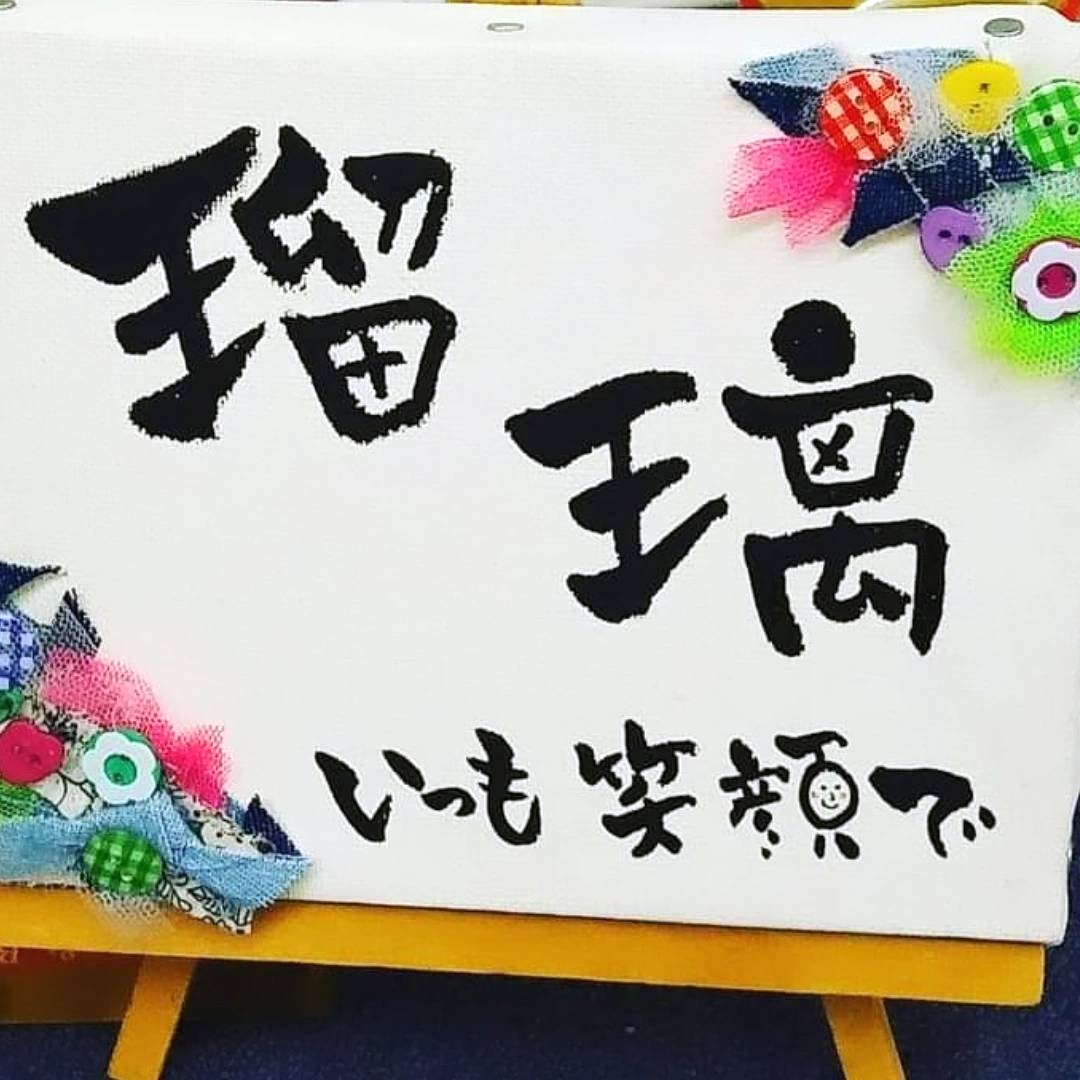 瑠璃
いつも笑顔で